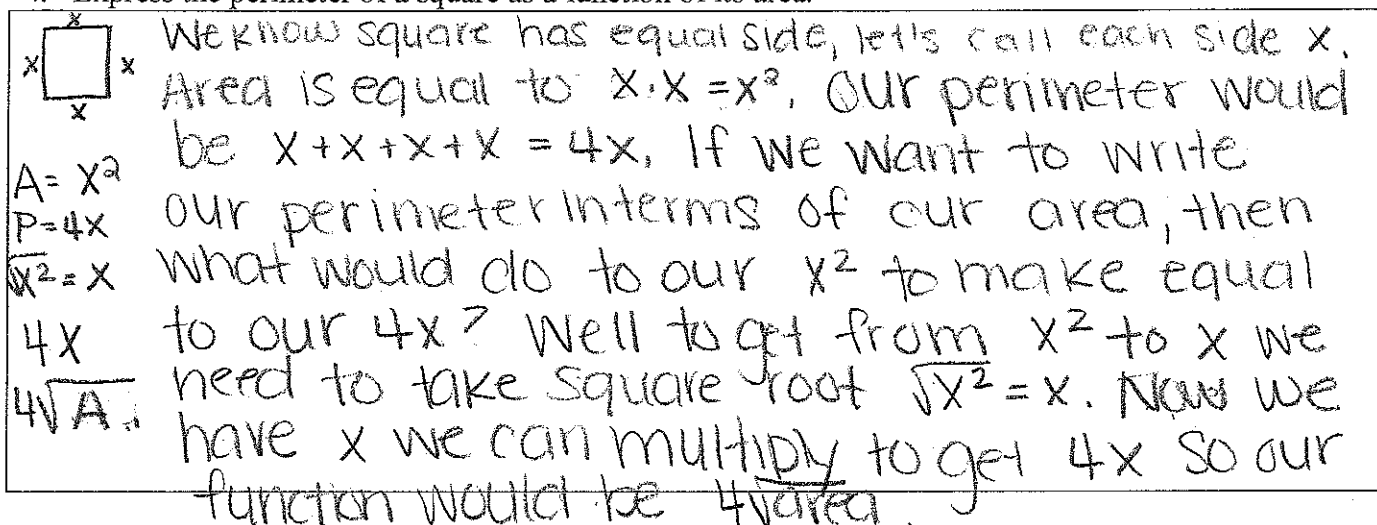 4. Express the perimeter of a square as a function of its area.
x
x x
x
We know square has equal side, let's call each side x.
Area is equal to x·x = x². Our perimeter would
be x+x+x+x = 4x. If we want to write
our perimeter interms of our area, then
what would do to our x² to make equal
to our 4x? Well to get from x² to x we
need to take square root √x² = x. Now we
have x we can multiply to get 4x so our
function would be 4√area.
A = x²
P = 4x
√x² = x
4x
4√A.